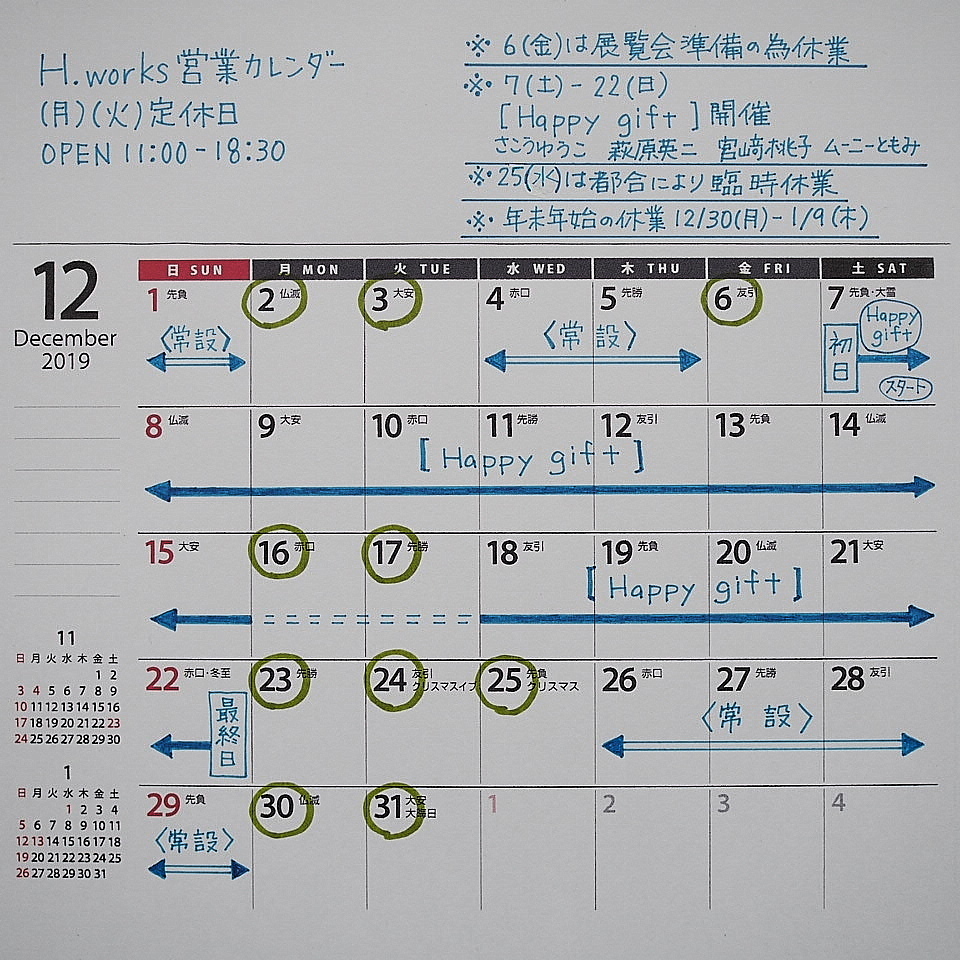 H.works 営業カレンダー
(月)(火)定休日
OPEN 11:00-18:30
※ 6(金)は展覧会準備の為休業
※ 7(土)-22(日)
[Happy gift]開催
さこうゆうこ 萩原英二 宮﨑桃子 ムーニーともみ
※ 25(水)は都合により臨時休業
※ 年末年始の休業12/30(月)-1/9(木)
12
December
2019
日 SUN 月 MON 火 TUE 水 WED 木 THU 金 FRI 土 SAT
1 先負 2 仏滅 3 大安 4 赤口 5 先勝 6 友引 7 先負・大雪
〈常設〉 〈常設〉 初日 Happy gift
スタート
8 仏滅 9 大安 10 赤口 11 先勝 12 友引 13 先負 14 仏滅
[Happy gift]
15 大安 16 赤口 17 先勝 18 友引 19 先負 20 仏滅 21 大安
[Happy gift]
22 赤口・冬至 23 先勝 24 友引 クリスマスイブ 25 先負 クリスマス 26 赤口 27 先勝 28 友引
最終日 〈常設〉
29 先負 30 仏滅 31 大安 大晦日 1 2 3 4
〈常設〉
11
日 月 火 水 木 金 土
1 2
3 4 5 6 7 8 9
10 11 12 13 14 15 16
17 18 19 20 21 22 23
24 25 26 27 28 29 30
1
日 月 火 水 木 金 土
1 2 3 4
5 6 7 8 9 10 11
12 13 14 15 16 17 18
19 20 21 22 23 24 25
26 27 28 29 30 31